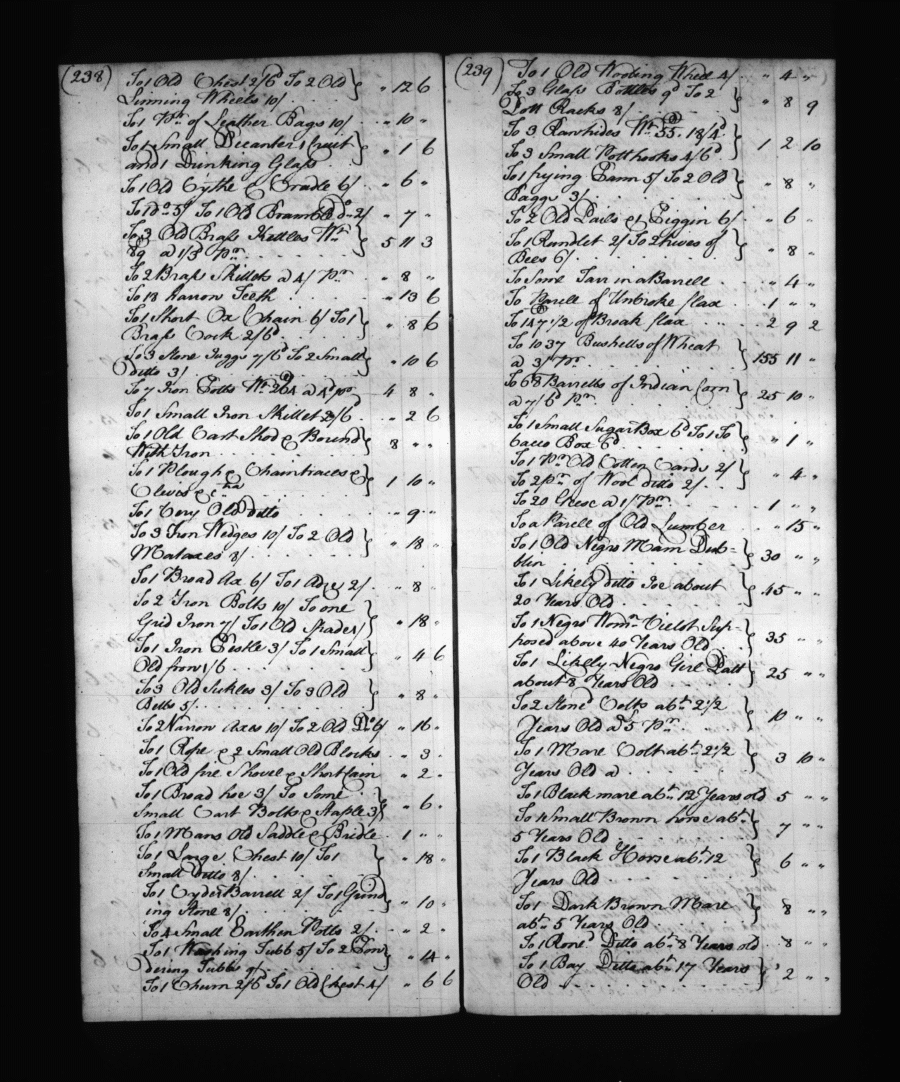 (238)
To 1 Old Chest 2/6d To 2 Old } " 12 6
Linning Wheels 10/
To 1 Pr of Leather Bags 10/ " 10 "
To 1 Small Decanter 1 Cruit } " 1 6
and 1 Drinking Glass
To 1 Old Cythe & Cradle 6/ " 6 "
To 1 do 5/ To 1 Old Bramble do 2/ " 7 "
To 3 Old Brass Kettles Wt } 5 11 3
89 a 1/3 Pr
To 2 Brass Skillets a 4/ Pr " 8 "
To 18 Harrow Teeth " 13 6
To 1 Short Ox Chain 6/ To 1 } " 8 6
Brass Cock 2/6d
To 3 Stone Juggs 7/6d To 2 Small } " 10 6
ditto 3/
To 7 Iron Potts Wt 264 a 4d pr 4 8 "
To 1 Small Iron Skillet 2/6 " 2 6
To 1 Old Cart Shod & Bound } 8 " "
With Iron
To 1 Plough & Chaintraces & } 1 10 "
Clevis &c
To 1 Very Old ditto " 9 "
To 3 Iron Wedges 10/ To 2 Old } " 18 "
Mataxes 8/
To 1 Broad Ax 6/ To 1 Adze 2/ " 8
To 2 Iron Bolts 10/ To one } " 18 "
Grid Iron 7/ To 1 Old Spade 1/
To 1 Iron Pestle 3/ To 1 Small } " 4 6
Old fron 1/6
To 3 Old Sickles 3/ To 3 Old } " 8 "
Bells 5/
To 2 Narrow Axes 10/ To 2 Old Do 6/ " 16 "
To 1 Rope & 2 Small Old Blocks " 3 "
To 1 Old fire Shovel & Short " 2 "
To 1 Broad hoe 3/ To Some } " 6 "
Small Cart Bolts & Staple 3/
To 1 Mans Old Saddle & Bridle 1 " "
To 1 Large Chest 10/ To 1 } " 18 "
Small Ditto 8/
To 1 Cyder Barrell 2/ To 1 Grind } " 10 "
ing Stone 8/
To 4 Small Earthen Potts 2/ " 2 "
To 1 Washing Tubb 5/ To 2 Pow } " 14 "
dering Tubbs 9/
To 1 Churn 2/6 To 1 Old Chest 4/ " 6 6
(239)
To 1 Old Wooling Wheel 4/ " 4 "
To 3 Glass Bottles 9d To 2 } " 8 9
Pott Racks 8/
To 3 Rawhides Wt 55. 18/4d } 1 2 10
To 3 Small Potthooks 4/6d
To 1 frying Pann 5/ To 2 Old } " 8 "
Baggs 3/
To 2 Old Pails & 1 Piggin 6/ " 6 "
To 1 Rundlet 2/ To 2 hives of } " 8 "
Bees 6/
To Some Tarr in a Barrell " 4 "
To Parell of Unbroke flax 1 " "
To 147 1/2 of Break flax 2 9 2
To 1037 Bushells of Wheat } 155 11 "
a 3/ Pr
To 68 Barrells of Indian Corn } 25 10 "
a 7/6d Pr
To 1 Small Sugar Box 6d To 1 To } " 1 "
bacco Box 6d
To 1 Pr Old Cotton Cards 2/ } " 4 "
To 2 Pr of Wool ditto 2/
To 20 Geese a 1/ Pr 1 " "
To a Parell of Old Lumber " 15 "
To 1 Old Negro Mann Dub- } 30 " "
blin
To 1 Likely ditto Joe about } 45 "
20 Years Old
To 1 Negro Womn Violet Sup- } 35 " "
posed above 40 Years Old
To 1 Likelly Negro Girl Patt } 25 " "
about 8 Years Old
To 2 Stone Colts abt 2 1/2 } 10 " "
Years Old a 5 Pr
To 1 Mare Colt abt 2 1/2 } 3 10 "
Years Old a
To 1 Black mare abt 12 Years old 5 " "
To 1 Small Brown horse abt } 7 " "
5 Years Old
To 1 Black Horse abt 12 } 6 " "
Years Old
To 1 Dark Brown Mare } 8 " "
abt 5 Years Old
To 1 Rone Ditto abt 8 Years old 8 " "
To 1 Bay Ditto abt 17 Years } 2 " "
Old